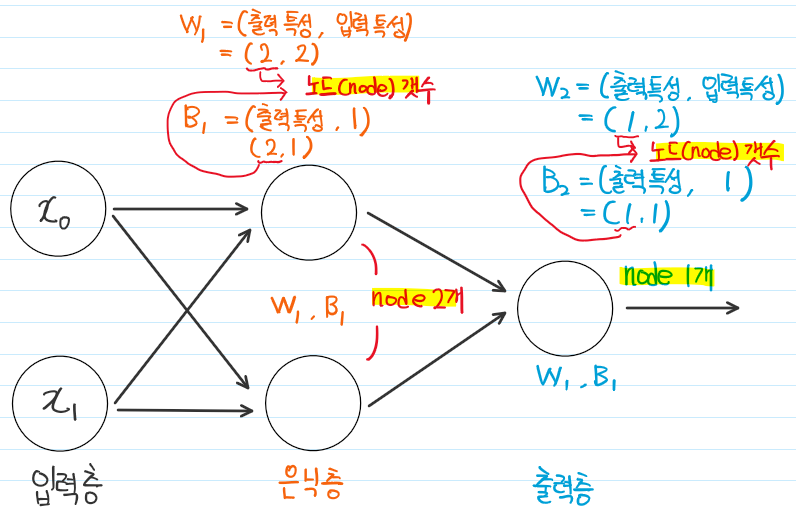 W₁ = (출력특성, 입력특성)
= (2, 2)
노드(node) 갯수
B₁ = (출력특성, 1)
(2,1)
W₂ = (출력특성, 입력특성)
= (1, 2)
노드(node) 갯수
B₂ = (출력특성, 1)
= (1, 1)
x₀
node 1개
W₁, B₁
node 2개
x₁
W₁, B₁
입력층
은닉층
출력층